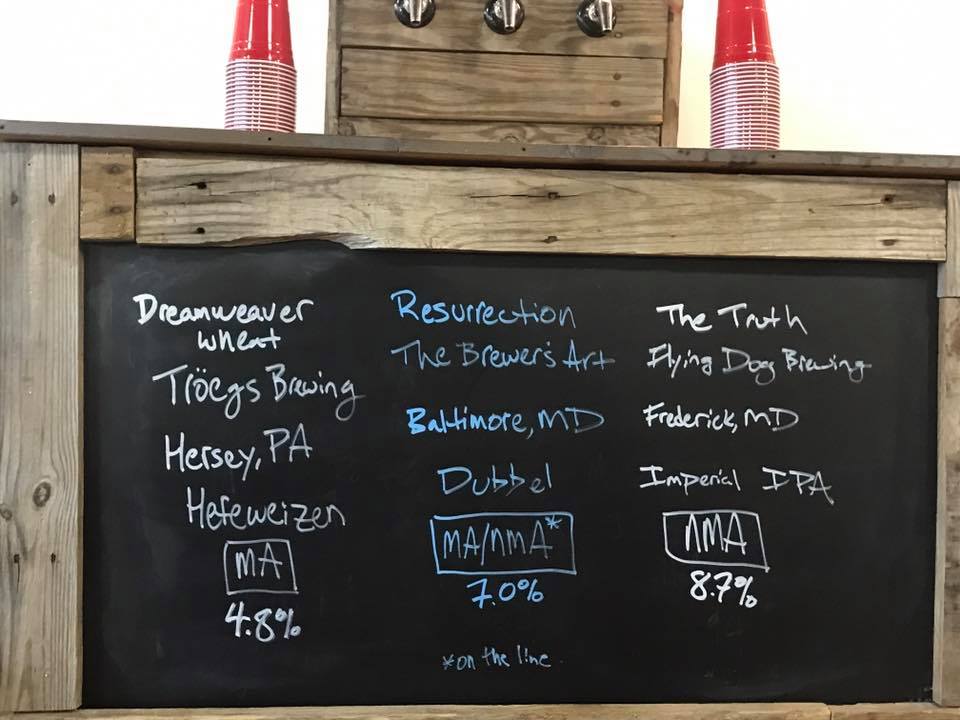 Dreamweaver
wheat
Tröegs Brewing
Hersey, PA
Hefeweizen
MA
4.8%
Resurrection
The Brewer's Art
Baltimore, MD
Dubbel
MA/NMA*
7.0%
*on the line
The Truth
Flying Dog Brewing
Frederick, MD
Imperial IPA
NMA
8.7%